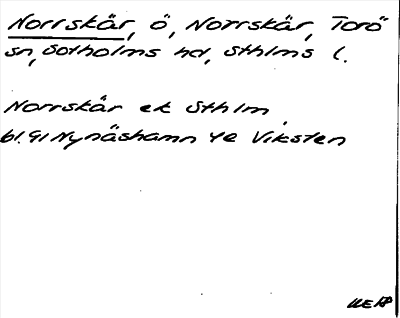 Norrskär, ö, Norrskär, Torö
sn, Sotholms hd, Sthlms l.
Norrskär ek Sthlm
bl. 91 Nynäshamn 4e Viksten